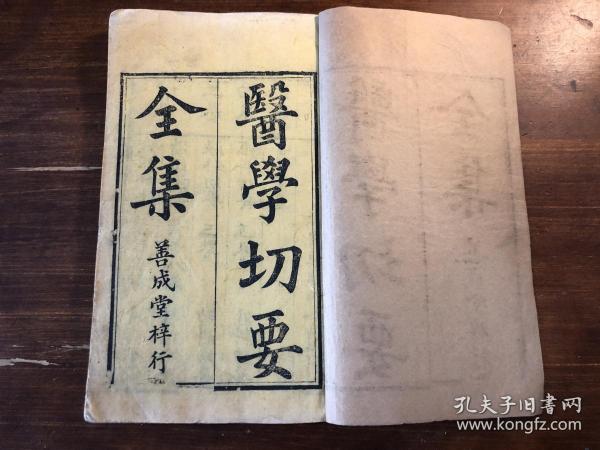 醫學切要
全集
善成堂梓行
孔夫子旧书网
www.kongfz.com